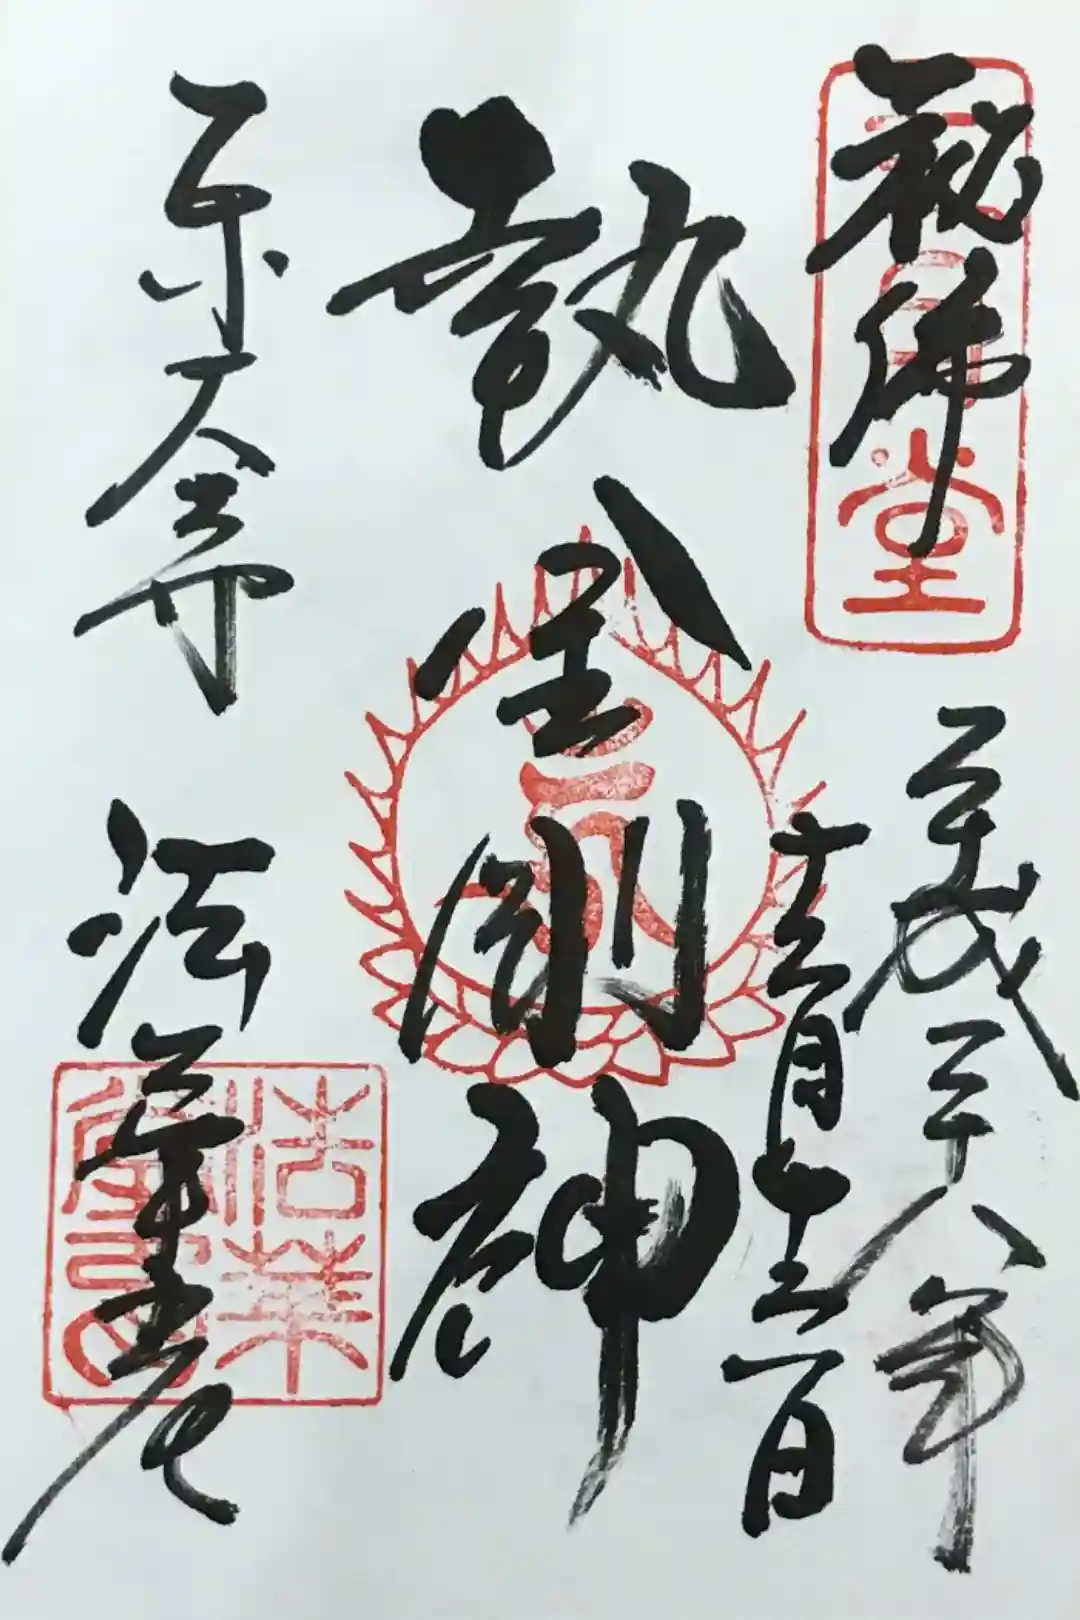 秘佛
三月堂
平成二十八年
十二月
執金剛神
東大寺
法華堂
法華堂印